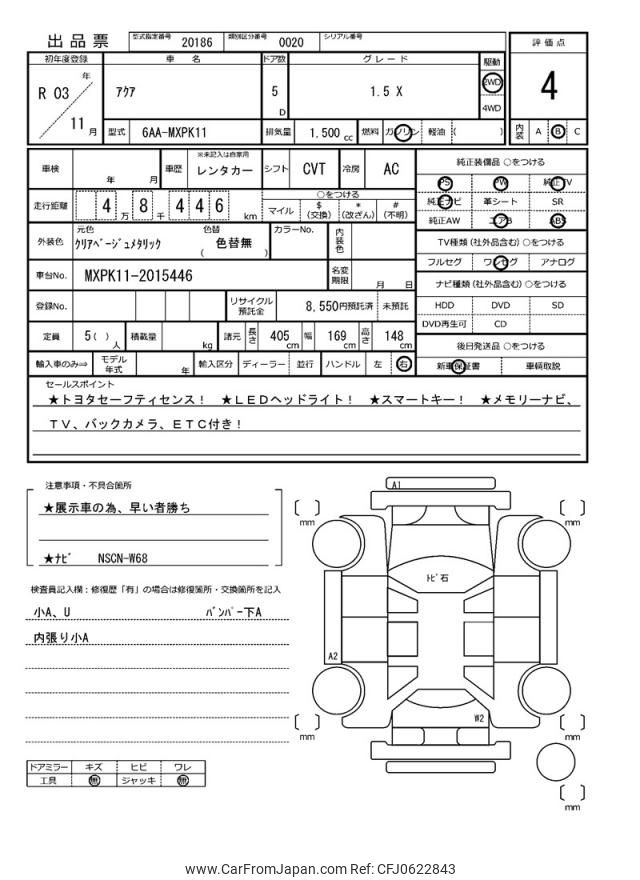 出品票 型式指定番号 20186 類別区分番号 0020 シリアル番号
評価点
4
内装 A B C
初年度登録 車名 ドア数 グレード 駆動
R 03 年 11 月 アクア 5 D 1.5 X 2WD 4WD
型式 6AA-MXPK11 排気量 1.500 cc 燃料 ガソリン 軽油 ( )
車検 年 月 車歴 ※未記入は自家用 レンタカー シフト CVT 冷房 AC
走行距離 4 万 8 千 4 4 6 km ○をつける
マイル $ (交換) * (改ざん) # (不明)
外装色 元色 クリアベージュメタリック 色替 ( 色替無 ) カラーNo. 内装色
車台No. MXPK11-2015446 名変期限 月 日
登録No. リサイクル預託金 8,550円預託済 未預託
定員 5( ) 人 積載量 kg 諸元 長さ 405 cm 幅 169 cm 高さ 148 cm
輸入車のみ⇒ モデル年式 年 輸入区分 ディーラー 並行 ハンドル 左 右
純正装備品 ○をつける
PS PW 純正TV
純正ナビ 革シート SR
純正AW エアB ABS
TV種類(社外品含む) ○をつける
フルセグ ワンセグ アナログ
ナビ種類(社外品含む) ○をつける
HDD DVD SD
DVD再生可 CD
後日発送品 ○をつける
新車保証書 車輌取説
セールスポイント
★トヨタセーフティセンス! ★LEDヘッドライト! ★スマートキー! ★メモリーナビ、
TV、バックカメラ、ETC付き!
注意事項・不具合箇所
★展示車の為、早い者勝ち
★ナビ NSCN-W68
検査員記入欄:修復歴「有」の場合は修復箇所・交換箇所を記入
小A、U バンパー下A
内張り小A
ドアミラー キズ ヒビ ワレ
工具 無 ジャッキ 無
A1
mm
mm
トビ石
A2
W2
mm
mm
mm
www.CarFromJapan.com Ref: CFJ0622843